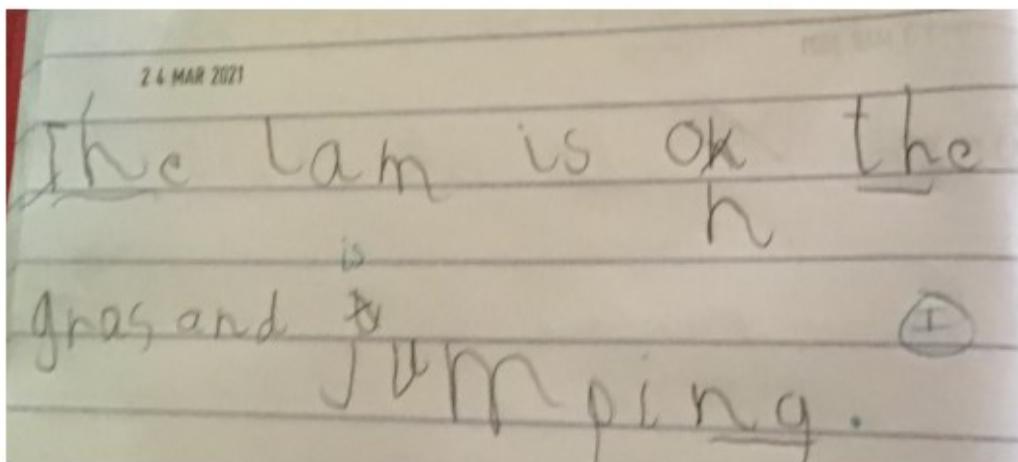 24 MAR 2021
The lam is ok the
n
is
gras and
I
Jumping.